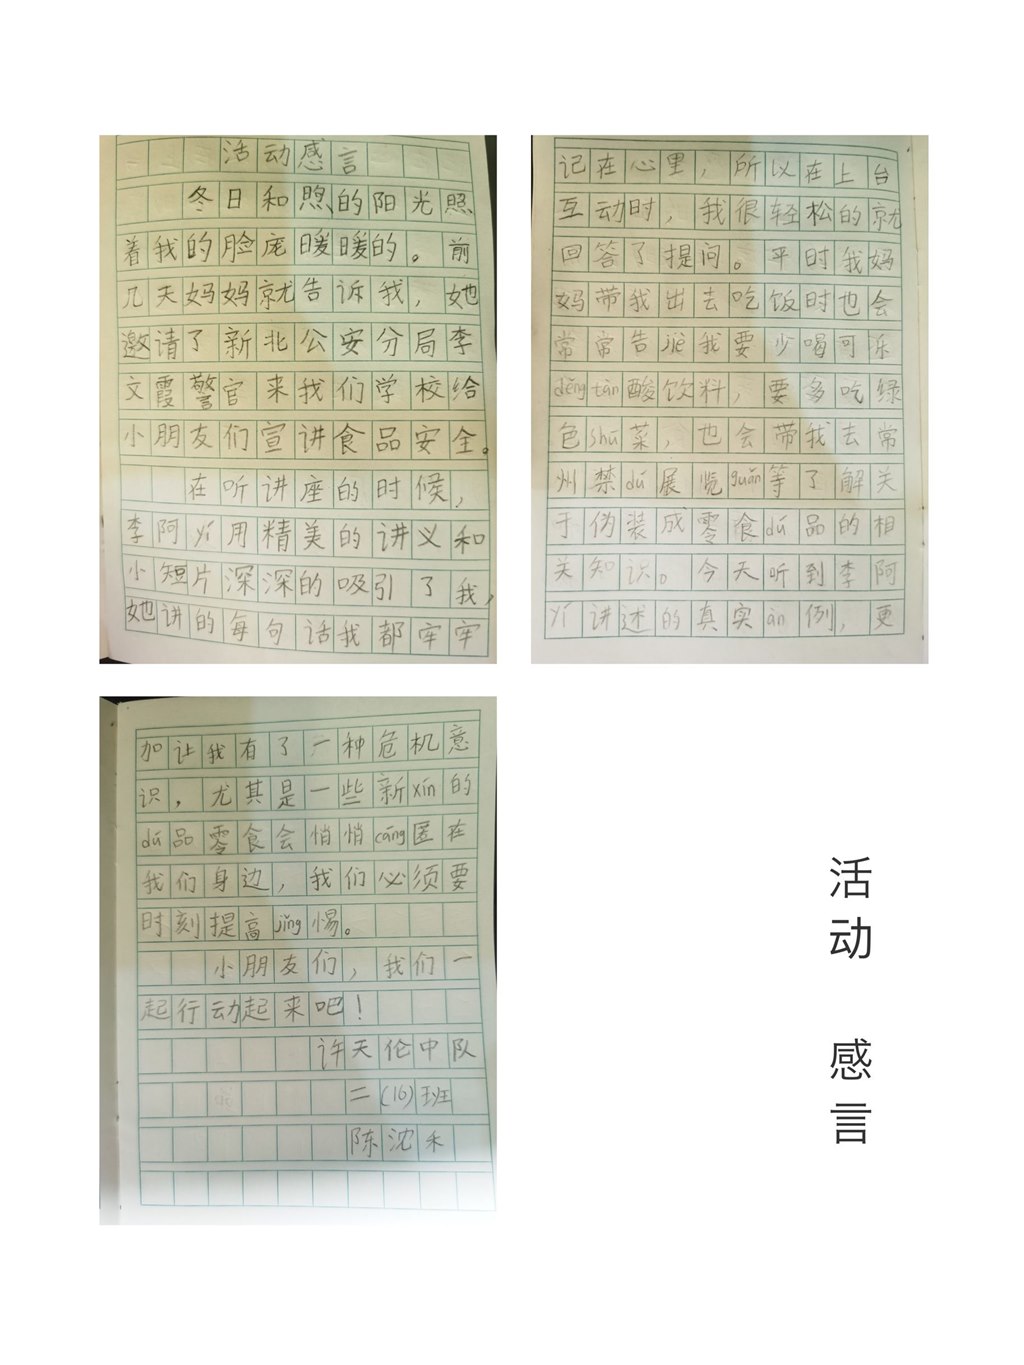 活动感言
冬日和煦的阳光照
着我的脸庞暖暖的。前
几天妈妈就告诉我，她
邀请了新北公安分局李
文霞警官来我们学校给
小朋友们宣讲食品安全。
在听讲座的时候，
李阿yí用精美的讲义和
小短片深深的吸引了我，
她讲的每句话我都牢牢
记在心里，所以在上台
互动时，我很轻松的就
回答了提问。平时我妈
妈带我出去吃饭时也会
常常告jiè我要少喝可乐
děng tàn酸饮料，要多吃绿
色shū菜，也会带我去常
州禁dú展览guǎn等了解关
于伪装成零食dú品的相
关知识。今天听到李阿
yí讲述的真实àn例，更
加让我有了一种危机意
识，尤其是一些新xín的
dú品零食会悄悄cáng匿在
我们身边，我们必须要
时刻提高jǐng惕。
小朋友们，我们一
起行动起来吧！
许天伦中队
二（16）班
陈沈禾
活动 感言